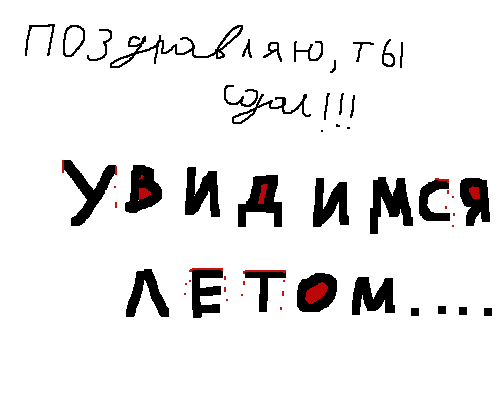 Поздравляю, ты
сдал!!!
УВИДИМСЯ
ЛЕТОМ....